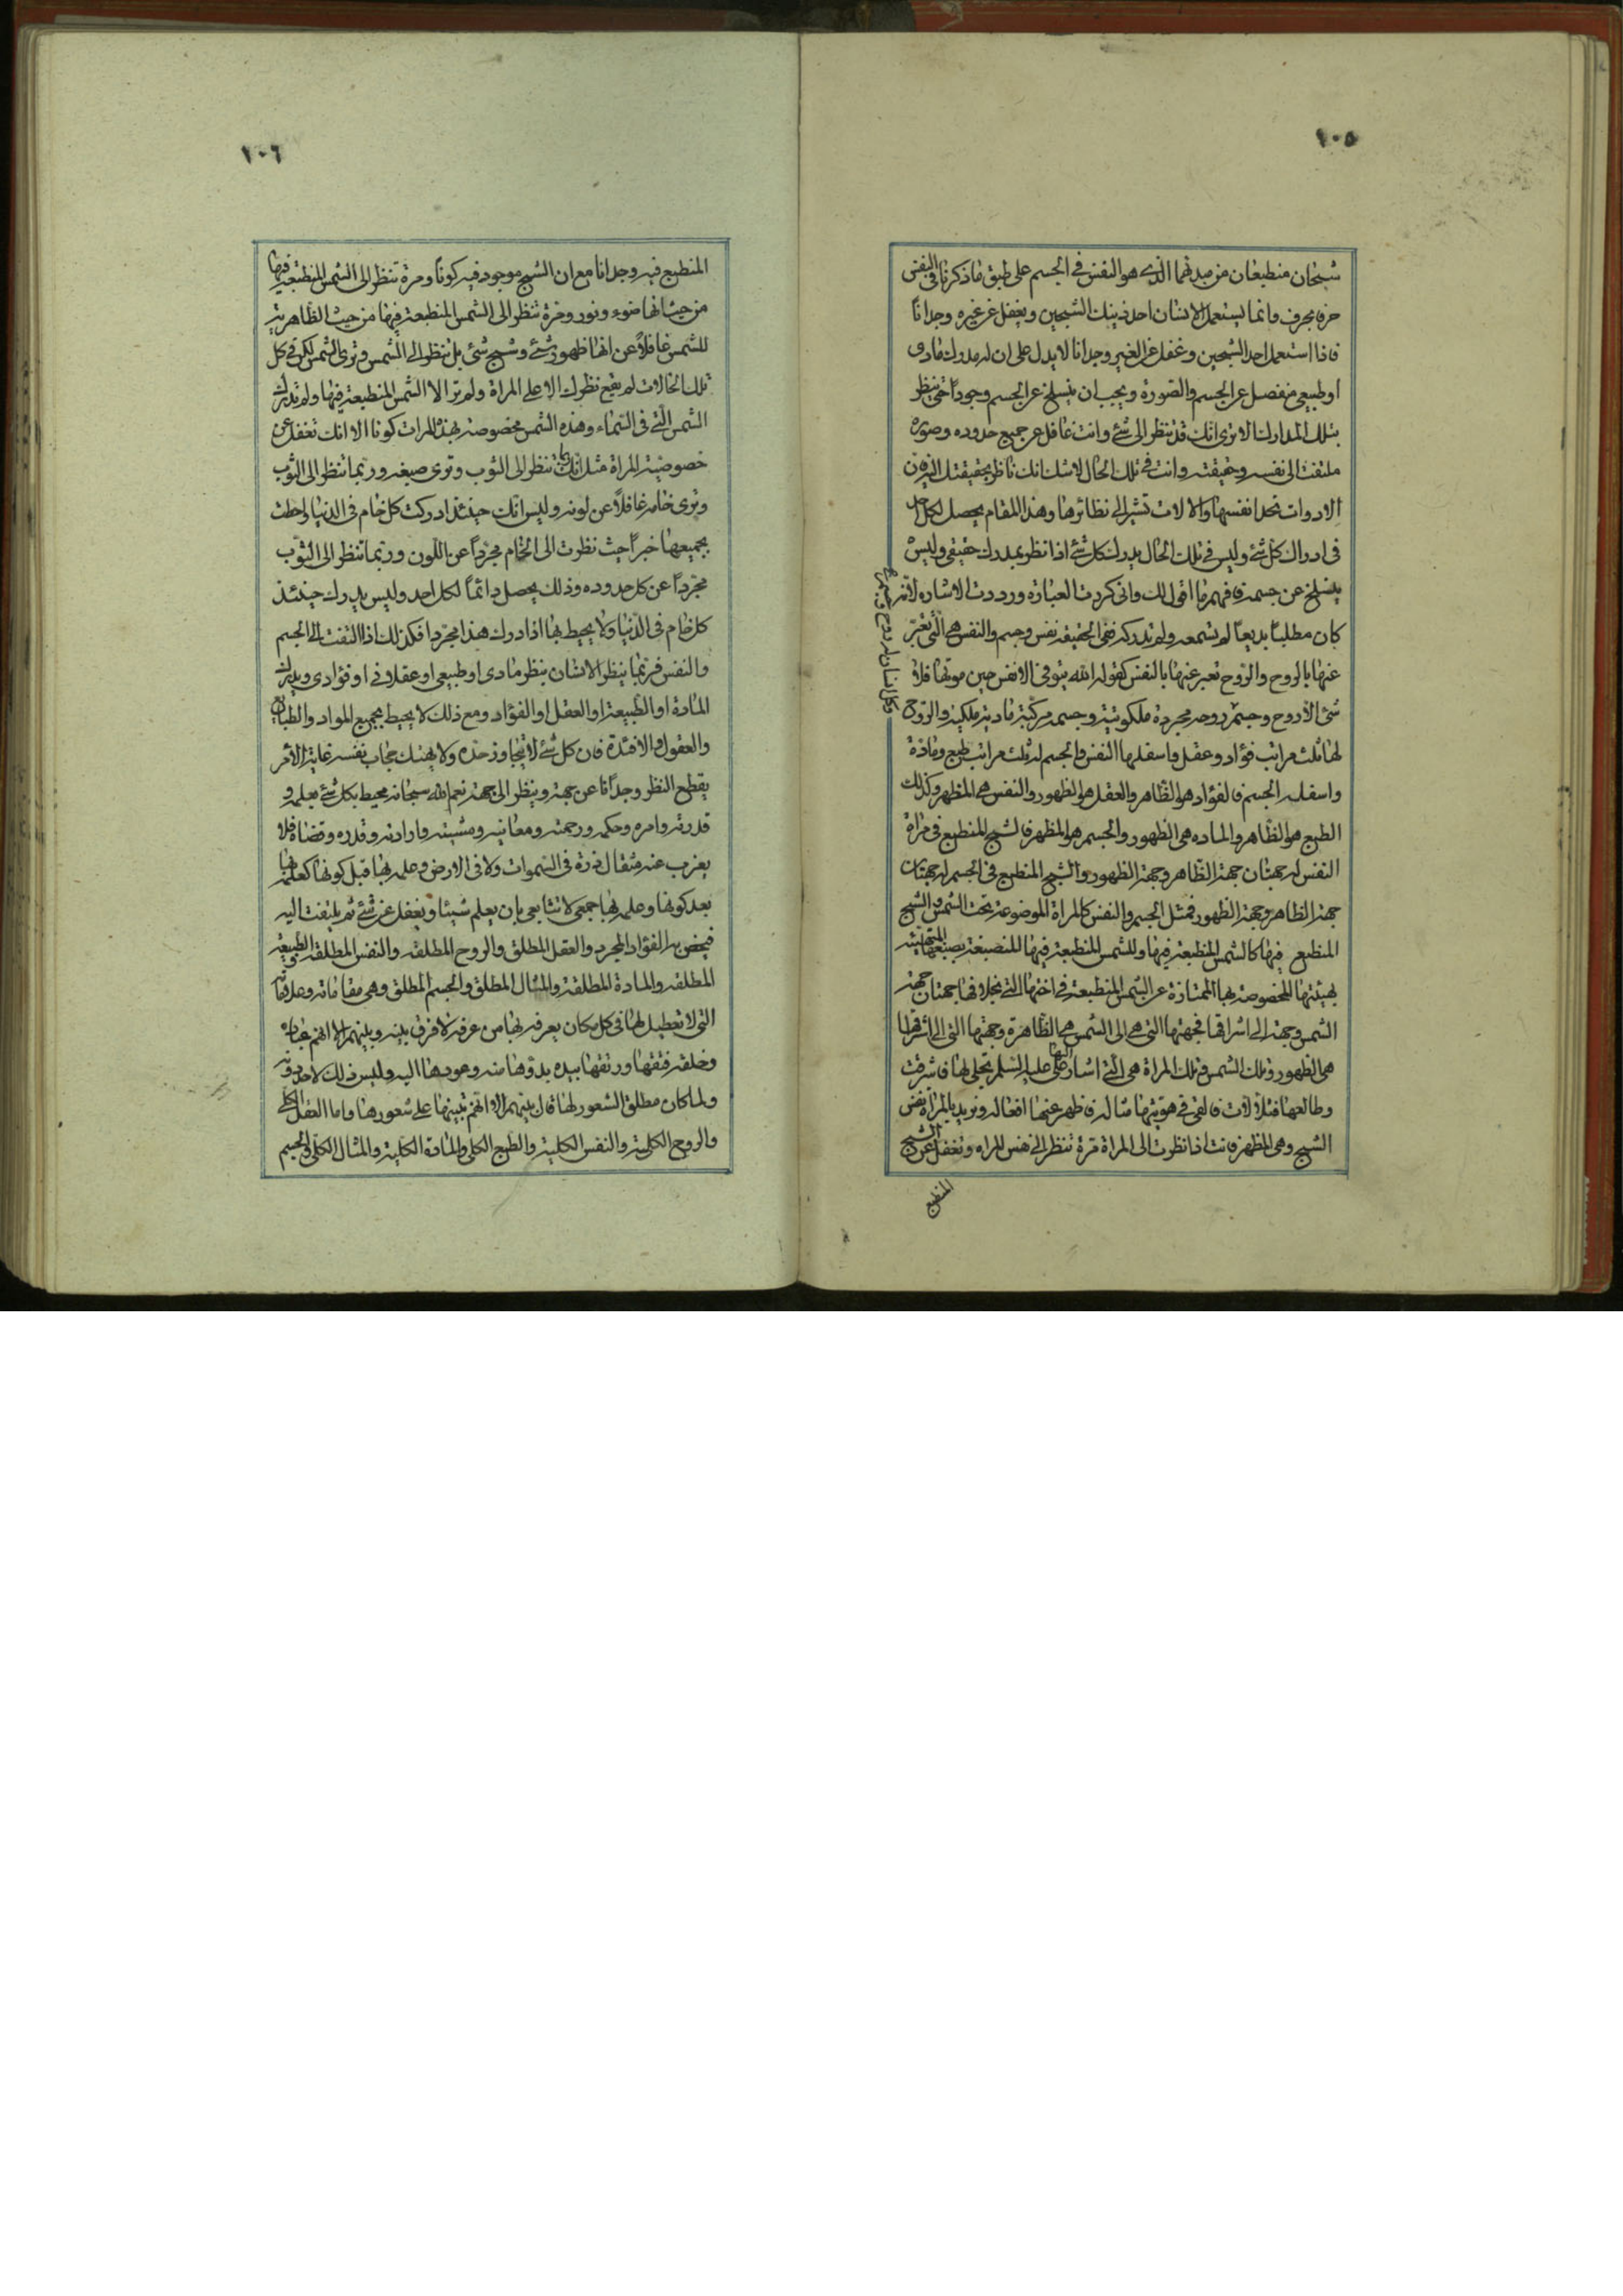 ١٠٥
شبحان منطبعان من مبدئهما الذي هو النفس في الجسم على طبق ما ذكرنا في النفس
حرفا بحرف وانما يستعمل الانسان احد ذينك الشبحين ويغفل عن غيره وجدانا
فاذا استعمل احد الشبحين وغفل عن الغير وجدانا لا يدل على ان له مدرك مادى
او طبيعي منفصل عن الجسم والصورة ويجب ان ينسلخ عن الجسم وجودا حتى ينظر
بتلك المدارك الا ترى انك قد تنظر الى شئ وانت غافل عن جميع حدوده وصوره
ملتفت الى نفسه وحقيقته وانت في تلك الحال لا شك انك ناظر بحقيقتك اذ
الادوات تحد انفسها والالات تشير الى نظائرها وهذا المقام يحصل لكل احد
في ادراك كل شئ وليس في تلك الحال يدرك كل شئ اذا نظر بمدرك حقيقي وليس
ينسلخ عن جسمه فافهم ما اقول لك واني كررت العبارة ورددت الاشارة لانه
كان مطلبا بديعا لم تسمعه ولم تدركه ففي الحقيقة نفس وجسم والنفس هي التي تعبر
عنها بالروح والروح تعبر عنها بالنفس كقوله الله يتوفى الانفس حين موتها فلا
شئ الا روح وجسم روحه مجردة ملكوتية وجسمه مركبة مادية ملكية والروح
لها ثلث مراتب فؤاد وعقل واسفلها النفس والجسم له ثلث مراتب طبع ومادة
واسفله الجسم فالفؤاد هو الظاهر والعقل هو الظهور والنفس هي المظهر وكذلك
الطبع هو الظاهر والمادة هي الظهور والجسم هو المظهر فالشبح المنطبع في مراة
النفس له جهتان جهة الظاهر وجهة الظهور والشبح المنطبع في الجسم له جهتان
جهة الظاهر وجهة الظهور فمثل الجسم والنفس كالمراة الموضوعة تحت الشمس والشبح
المنطبع فيها كالشمس المنطبعة فيها وللشمس المنطبعة فيها المنصبغة بصبغها المتهيئة
بهيئتها المخصوصة بها الممتازة عن الشمس المنطبعة في اختها التي بخلافها جهتان جهة
الشمس وجهة الى اشراقها فجهتها التي هي الى الشمس هي الظاهرة وجهتها التي الى اشراقها
هي الظهور وتلك الشمس في تلك المراة هي التي اشار اليها علي عليه السلم تجلى لها فاشرقت
وطالعها فتلألأت فالقى في هويتها مثاله فاظهر عنها افعاله ونريد بالمراة نفس
الشبح وهي المظهر فانت اذا نظرت الى المراة مرة تنظر الى نفس المراة وتغفل عن الشبح
المنطبع
١٠٦
المنطبع فيه وجدانا مع ان الشبح موجود فيه كونا ومرة تنظر الى الشمس المنطبعة فيها
من حيث انها ضوء ونور ومرة تنظر الى الشمس المنطبعة فيها من حيث الظاهرية
للشمس غافلا عن انها ظهور شئ وشبح شئ بل تنظر الى الشمس وترى الشمس لكن في كل
تلك الحالات لم يقع نظرك الا على المراة ولم تر الا الشمس المنطبعة فيها ولم تدرك
الشمس التي في السماء وهذه الشمس مخصوصة بهذه المرات كونا الا انك تغفل عن
خصوصية المراة مثل انك تنظر الى الثوب وترى صبغه وربما تنظر الى الثوب
وترى خامه غافلا عن لونه وليس انك حينئذ ادركت كل خام في الدنيا واحطت
بجميعها خبرا حيث نظرت الى الخام مجردا عن اللون وربما تنظر الى الثوب
مجردا عن كل حدوده وذلك يحصل دائما لكل احد وليس يدرك حينئذ
كل خام في الدنيا ولا يحيط بها اذا درك هذا مجردا فكذلك اذا التفت الى الجسم
والنفس فربما ينظر الانسان بنظر مادى او طبيعي او عقلاني او فؤادى ويدرك
المادة او الطبيعة او العقل او الفؤاد ومع ذلك لا يحيط بجميع المواد والطبايع
والعقول والافئدة فان كل شئ لا يتجاوز حده ولا يهتك حجاب نفسه غاية الامر
يقطع النظر وجدانا عن جهة وينظر الى جهة نعم الله سبحانه محيط بكل شئ بعلمه و
قدرته وامره وحكمه ورحمته ومعانيه ومشيته وارادته وقدره وقضاه فلا
يعزب عنه مثقال ذرة في السموات ولا في الارض وعلمه بها قبل كونها كعلمه بها
بعد كونها وعلمه بها جمعي لا تتابعي بان يعلم شيئا ويغفل عن شئ ثم يلتفت اليه
فيختص به الفؤاد المجرد والعقل المطلق والروح المطلقة والنفس المطلقة والطبيعة
المطلقة والمادة المطلقة والمثال المطلق والجسم المطلق وهي مقاماته وعلاماته
التي لا تعطيل لها في كل مكان يعرفه بها من عرفه لا فرق بينه وبينهم الا انهم عباده
وخلقه فتقها ورتقها بيده بدؤها منه وعودها اليه وليس ذلك لاحد دونه
ولما كان مطلق الشعور لها قال بينهم الا انهم تنبيها على شعورها واما العقل الكلي
والروح الكلية والنفس الكلية والطبع الكلي والمادة الكلية والمثال الكلي والجسم